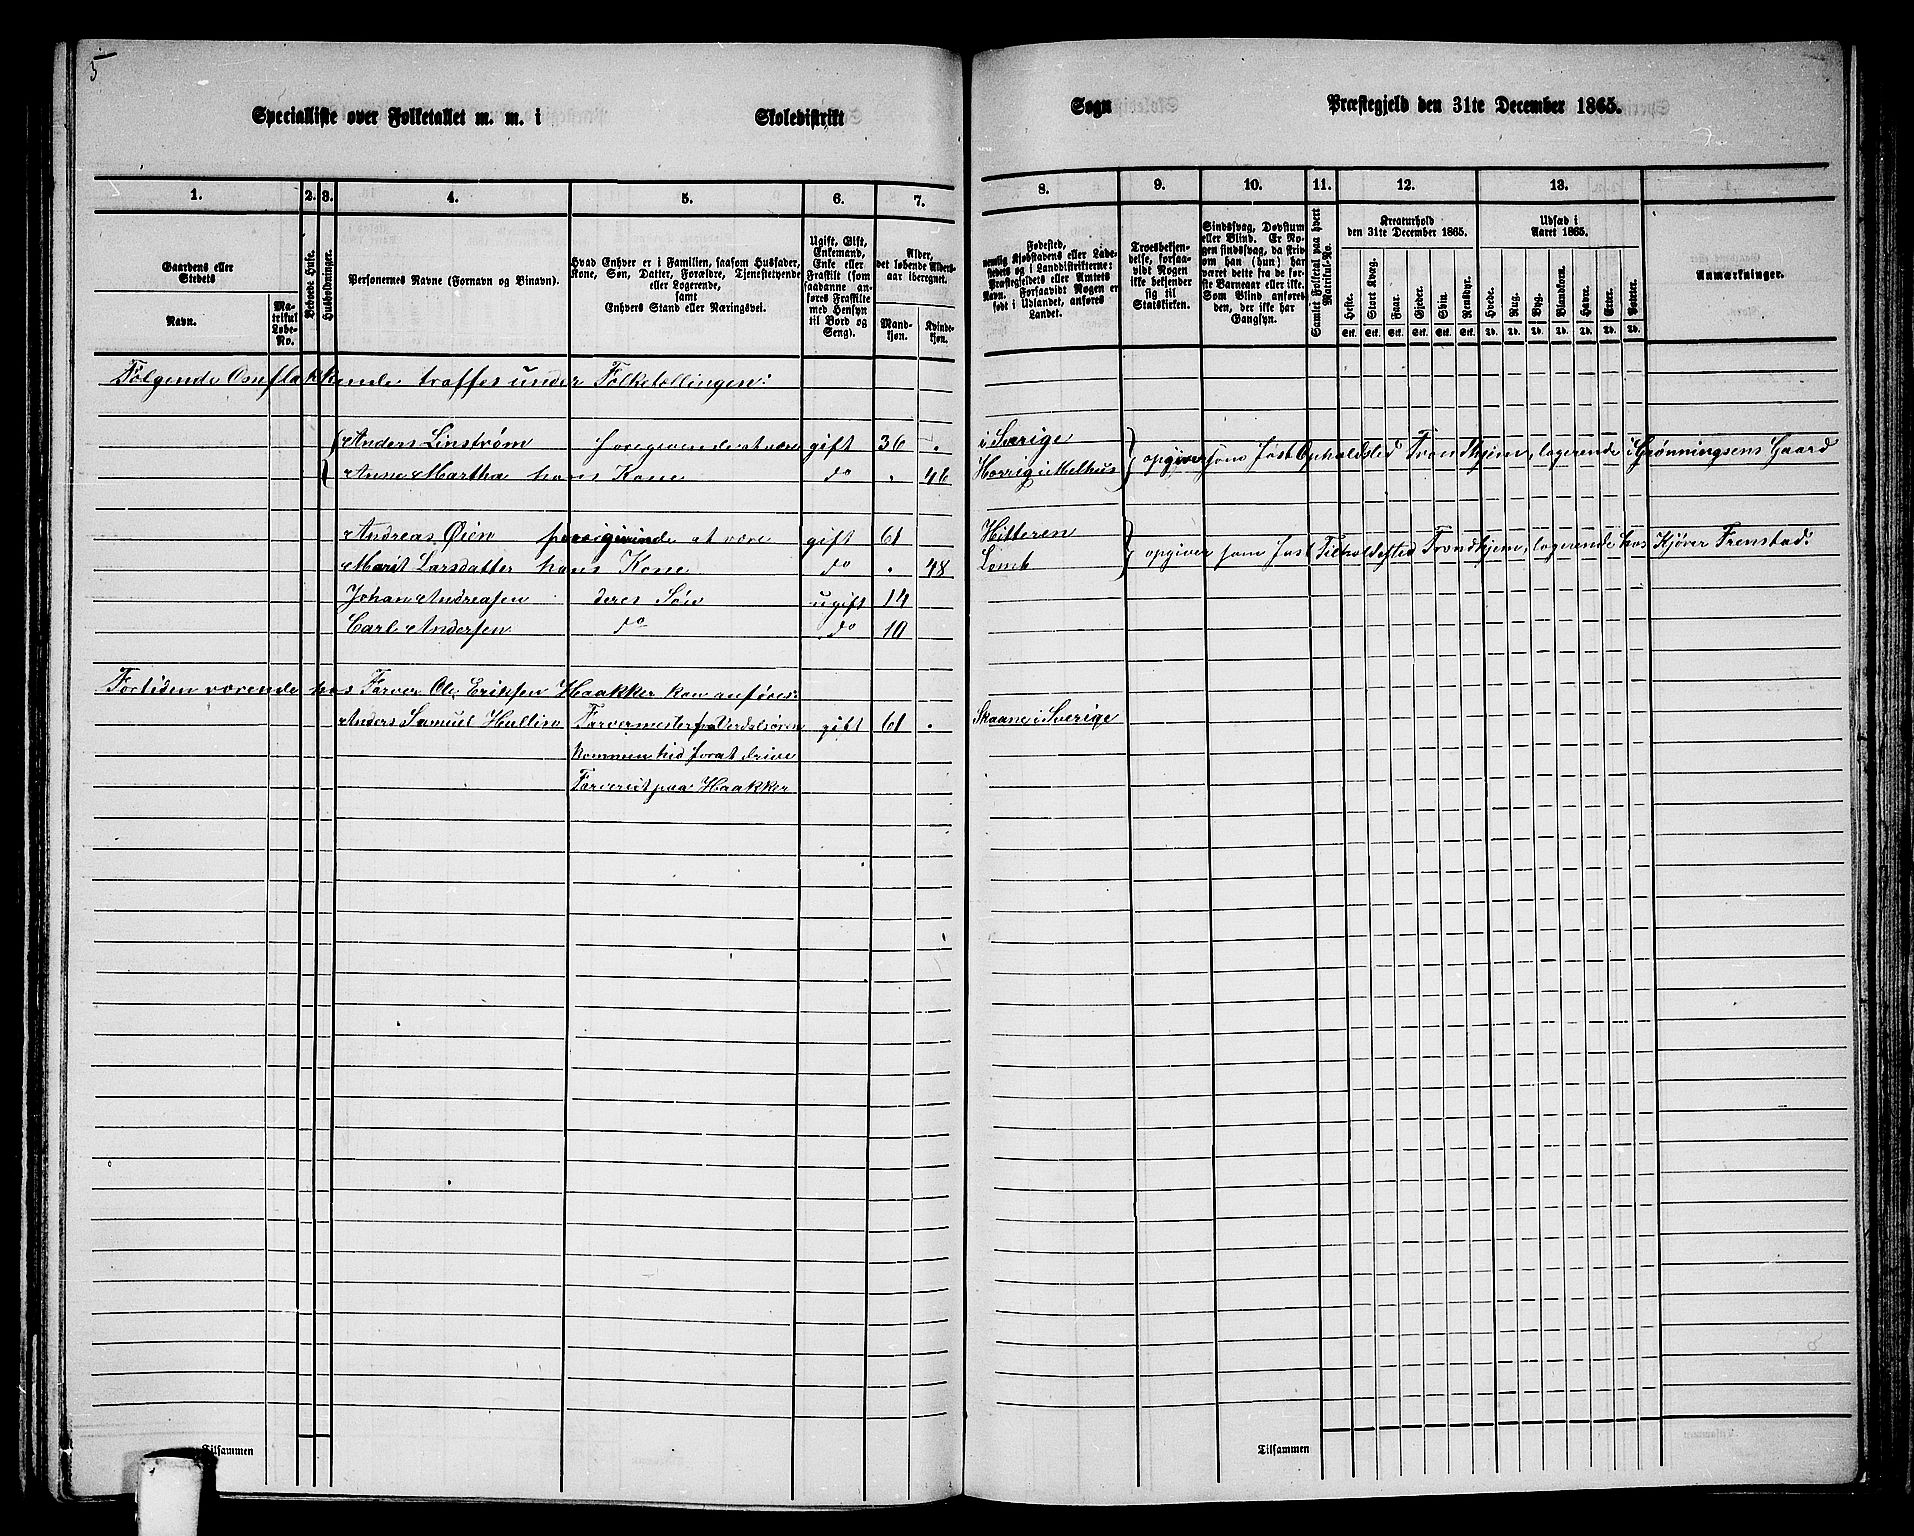 5
Specialliste over Folketallet m. m. i Skoledistrikt Sogn Præstegjeld den 31te December 1865.
1. 2. 3. 4. 5. 6. 7. 8. 9. 10. 11. 12. 13.
Gaardens eller Stedets
Navn.
Matrikul Løbe-No.
Beboede Huse.
Husholdninger.
Personernes Navne (Fornavn og Binavn).
Hvad Enhver er i Familien, saasom Husfader, Kone, Søn, Datter, Forældre, Tjenestetyende eller Logerende, samt Enhvers Stand eller Næringsvei.
Ugift, Gift, Enkemand, Enke eller Fraskilt (som saadanne anføres Fraskilte med Hensyn til Bord og Seng).
Alder, det løbende Alders-aar iberegnet.
Mandkjøn.
Kvindekjøn.
Fødested, nemlig Kjøbstadens eller Ladestedets og i Landdistrikterne: Præstegjeldets eller Amtets Navn. Forsaavidt Nogen er født i Udlandet, anføres Landet.
Troesbekjendelse, forsaavidt Nogen ikke bekjender sig til Statskirken.
Sindssvag, Døvstum eller Blind. Er Nogen sindssvag, da hvis om han (hun) har været dette fra de første Barneaar eller ikke. Som Blind anføres den, der ikke har Gangsyn.
Samlet Folketal paa hvert Matrikul-No.
Kreaturhold den 31te December 1865.
Heste. Stort Kvæg. Faar. Gjeder. Svin. Rensdyr.
Stk. Stk. Stk. Stk. Stk. Stk.
Udsæd i Aaret 1865.
Hvede. Rug. Byg. Blandkorn. Havre. Erter. Poteter.
Td. Td. Td. Td. Td. Td. Td.
Anmærkninger.
Følgende Omflakkende traffes under Folketællingen:
Anders Linstrøm foregivende at være gift 36 i Sverige
opgiver som fast Opholdsted Trondhjem, logerende i Grønningsens Gaard
Anne Martha hans Kone do 46 Horrig i Melhus
Andreas Øien foregivende at være gift 61 Hitteren
opgiver som fast Tilholdssted Trondhjem, logerende hos Kjører Frenstad.
Marit Larsdatter hans Kone do 48 Lomb
Johan Andreasen deres Søn ugift 14
Carl Andersen do do 10
For tiden værende hos Farver Ole Eriksen Haakker kan anføres:
Anders Samuel Hullin Farvermester fra Verdalsøren gift 61 Skaane i Sverige
kommen hid for at drive
Farveriet paa Haakker
Tilsammen Tilsammen